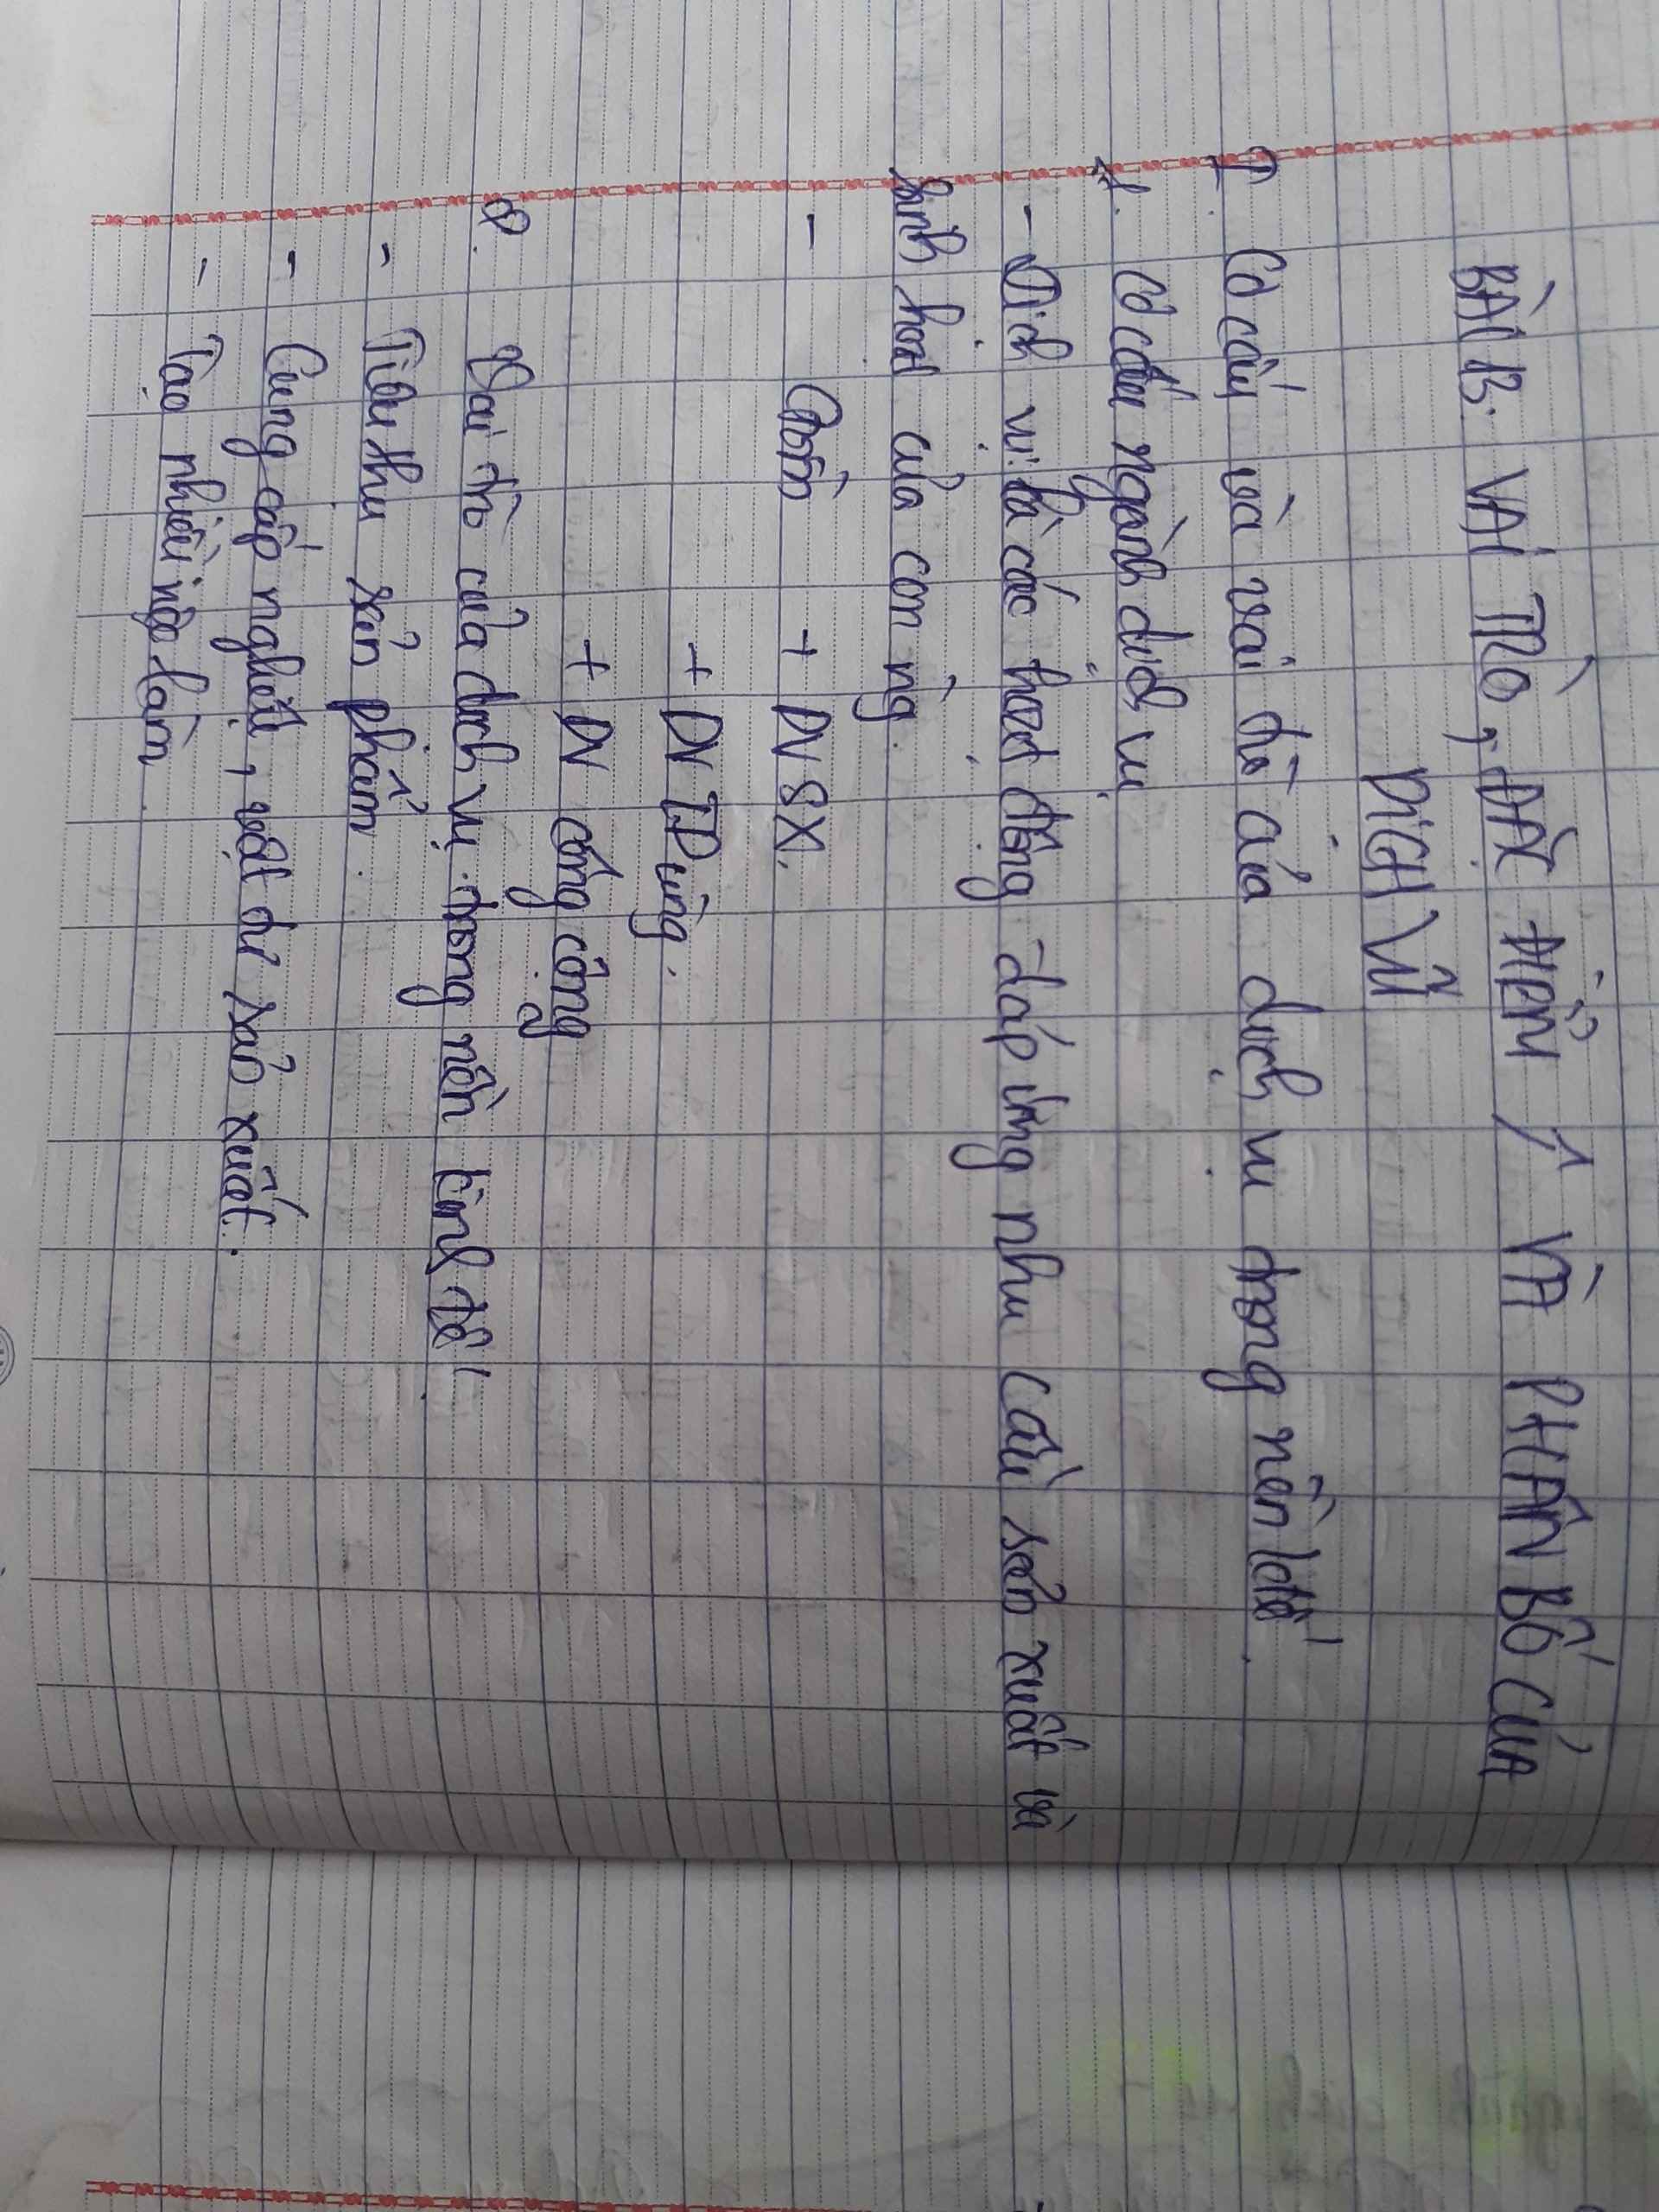 BÀI 13: VAI TRÒ, ĐẶC ĐIỂM ↑ VÀ PHÂN BỐ CỦA
DỊCH VŨ
I. Cơ cấu và vai trò của dịch vụ trong nền ktế.
1. Cơ cấu ngành dịch vụ
- Dịch vụ: là các hoạt động đáp ứng nhu cầu sản xuất và
sinh hoạt của con ng.
- Gồm + DV SX.
+ DV TDùng.
+ DV công cộng
2. Vai trò của dịch vụ trong nền kinh tế.
- Tiêu thụ sản phẩm.
- Cung cấp nghliệu, vật tư sản xuất.
- Tạo nhiều việc làm.